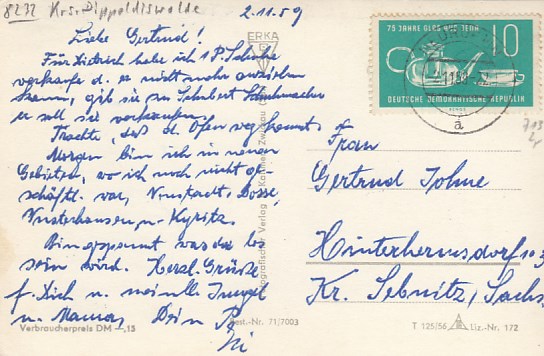 8272 Krs. Dippoldiswalde
2.11.59
Liebe Gertrud!
Für Dietrich habe ich 1 P. Schuhe
verkaufe d. er nicht mehr anziehen
kann, gib sie zu Schubert Schuhmacher
er soll sie verkaufen.
Trachte, daß d. Ofen wegkommt.
Morgen bin ich in neuen
Gebieten, wo ich noch nicht ge-
schäftl. war, Neustadt-Dosse,
Wusterhausen, u. Kyritz.
Bin gespannt was da los
sein wird. Herzl. Grüße
f. Dich u. meine Jungel
u. Mama, Dein
ERKA
Fotografischer Verlag R. Kallmer, Zwickau
Best.-Nr. 71/7003
Verbraucherpreis DM –,15
75 JAHRE GLAS AUS JENA
10
DEUTSCHE DEMOKRATISCHE REPUBLIK
a
Frau
Gertrud Johne
Hinterhermsdorf
Kr. Sebnitz, Sachs.
T 125/56 Liz.-Nr. 172